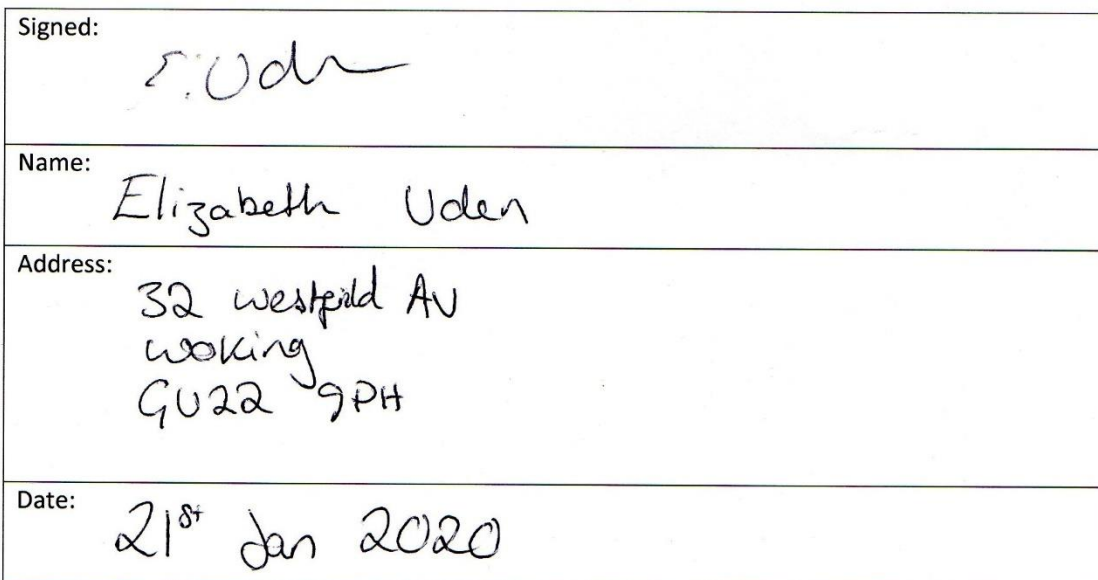 Signed:
E.Uden
Name:
Elizabeth Uden
Address:
32 westfield AV
woking
GU22 9PH
Date:
21st Jan 2020